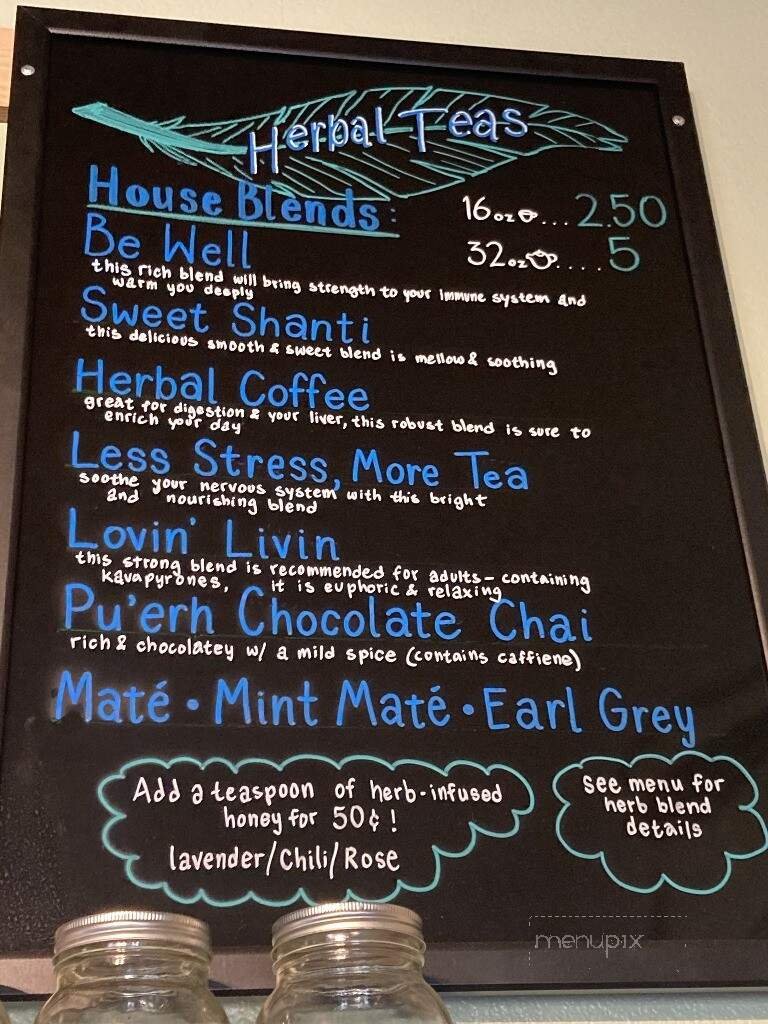 Herbal Teas
House Blends:
16oz... 2.50
32oz.... 5
Be Well
this rich blend will bring strength to your immune system and
warm you deeply
Sweet Shanti
this delicious smooth & sweet blend is mellow & soothing
Herbal Coffee
great for digestion & your liver, this robust blend is sure to
enrich your day
Less Stress, More Tea
soothe your nervous system with this bright
and nourishing blend
Lovin' Livin
this strong blend is recommended for adults - containing
Kavapyrones, it is euphoric & relaxing
Pu'erh Chocolate Chai
rich & chocolatey w/ a mild spice (contains caffiene)
Maté • Mint Maté • Earl Grey
Add a teaspoon of herb-infused
honey for 50¢!
lavender/Chili/Rose
See menu for
herb blend
details
menupix